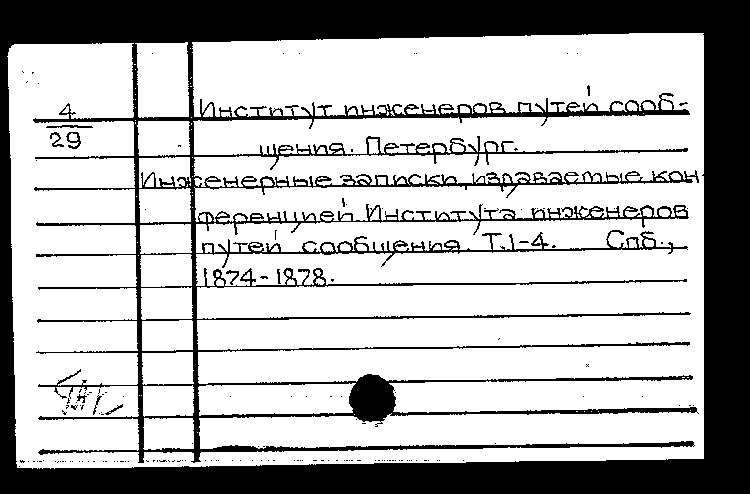 4
29
Институт инженеров путей сооб-
щения. Петербург.
Инженерные записки, издаваемые кон-
ференцией Института инженеров
путей сообщения. Т.1-4. Спб.,
1874-1878.